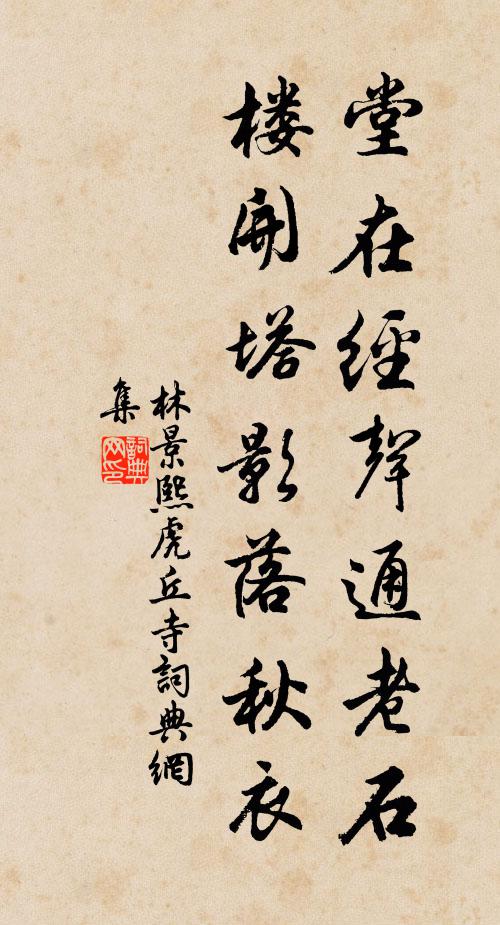 堂在經聲通老石
楼開塔影落秋衣
林景熙虎丘寺詞典網
集
詞典
网印